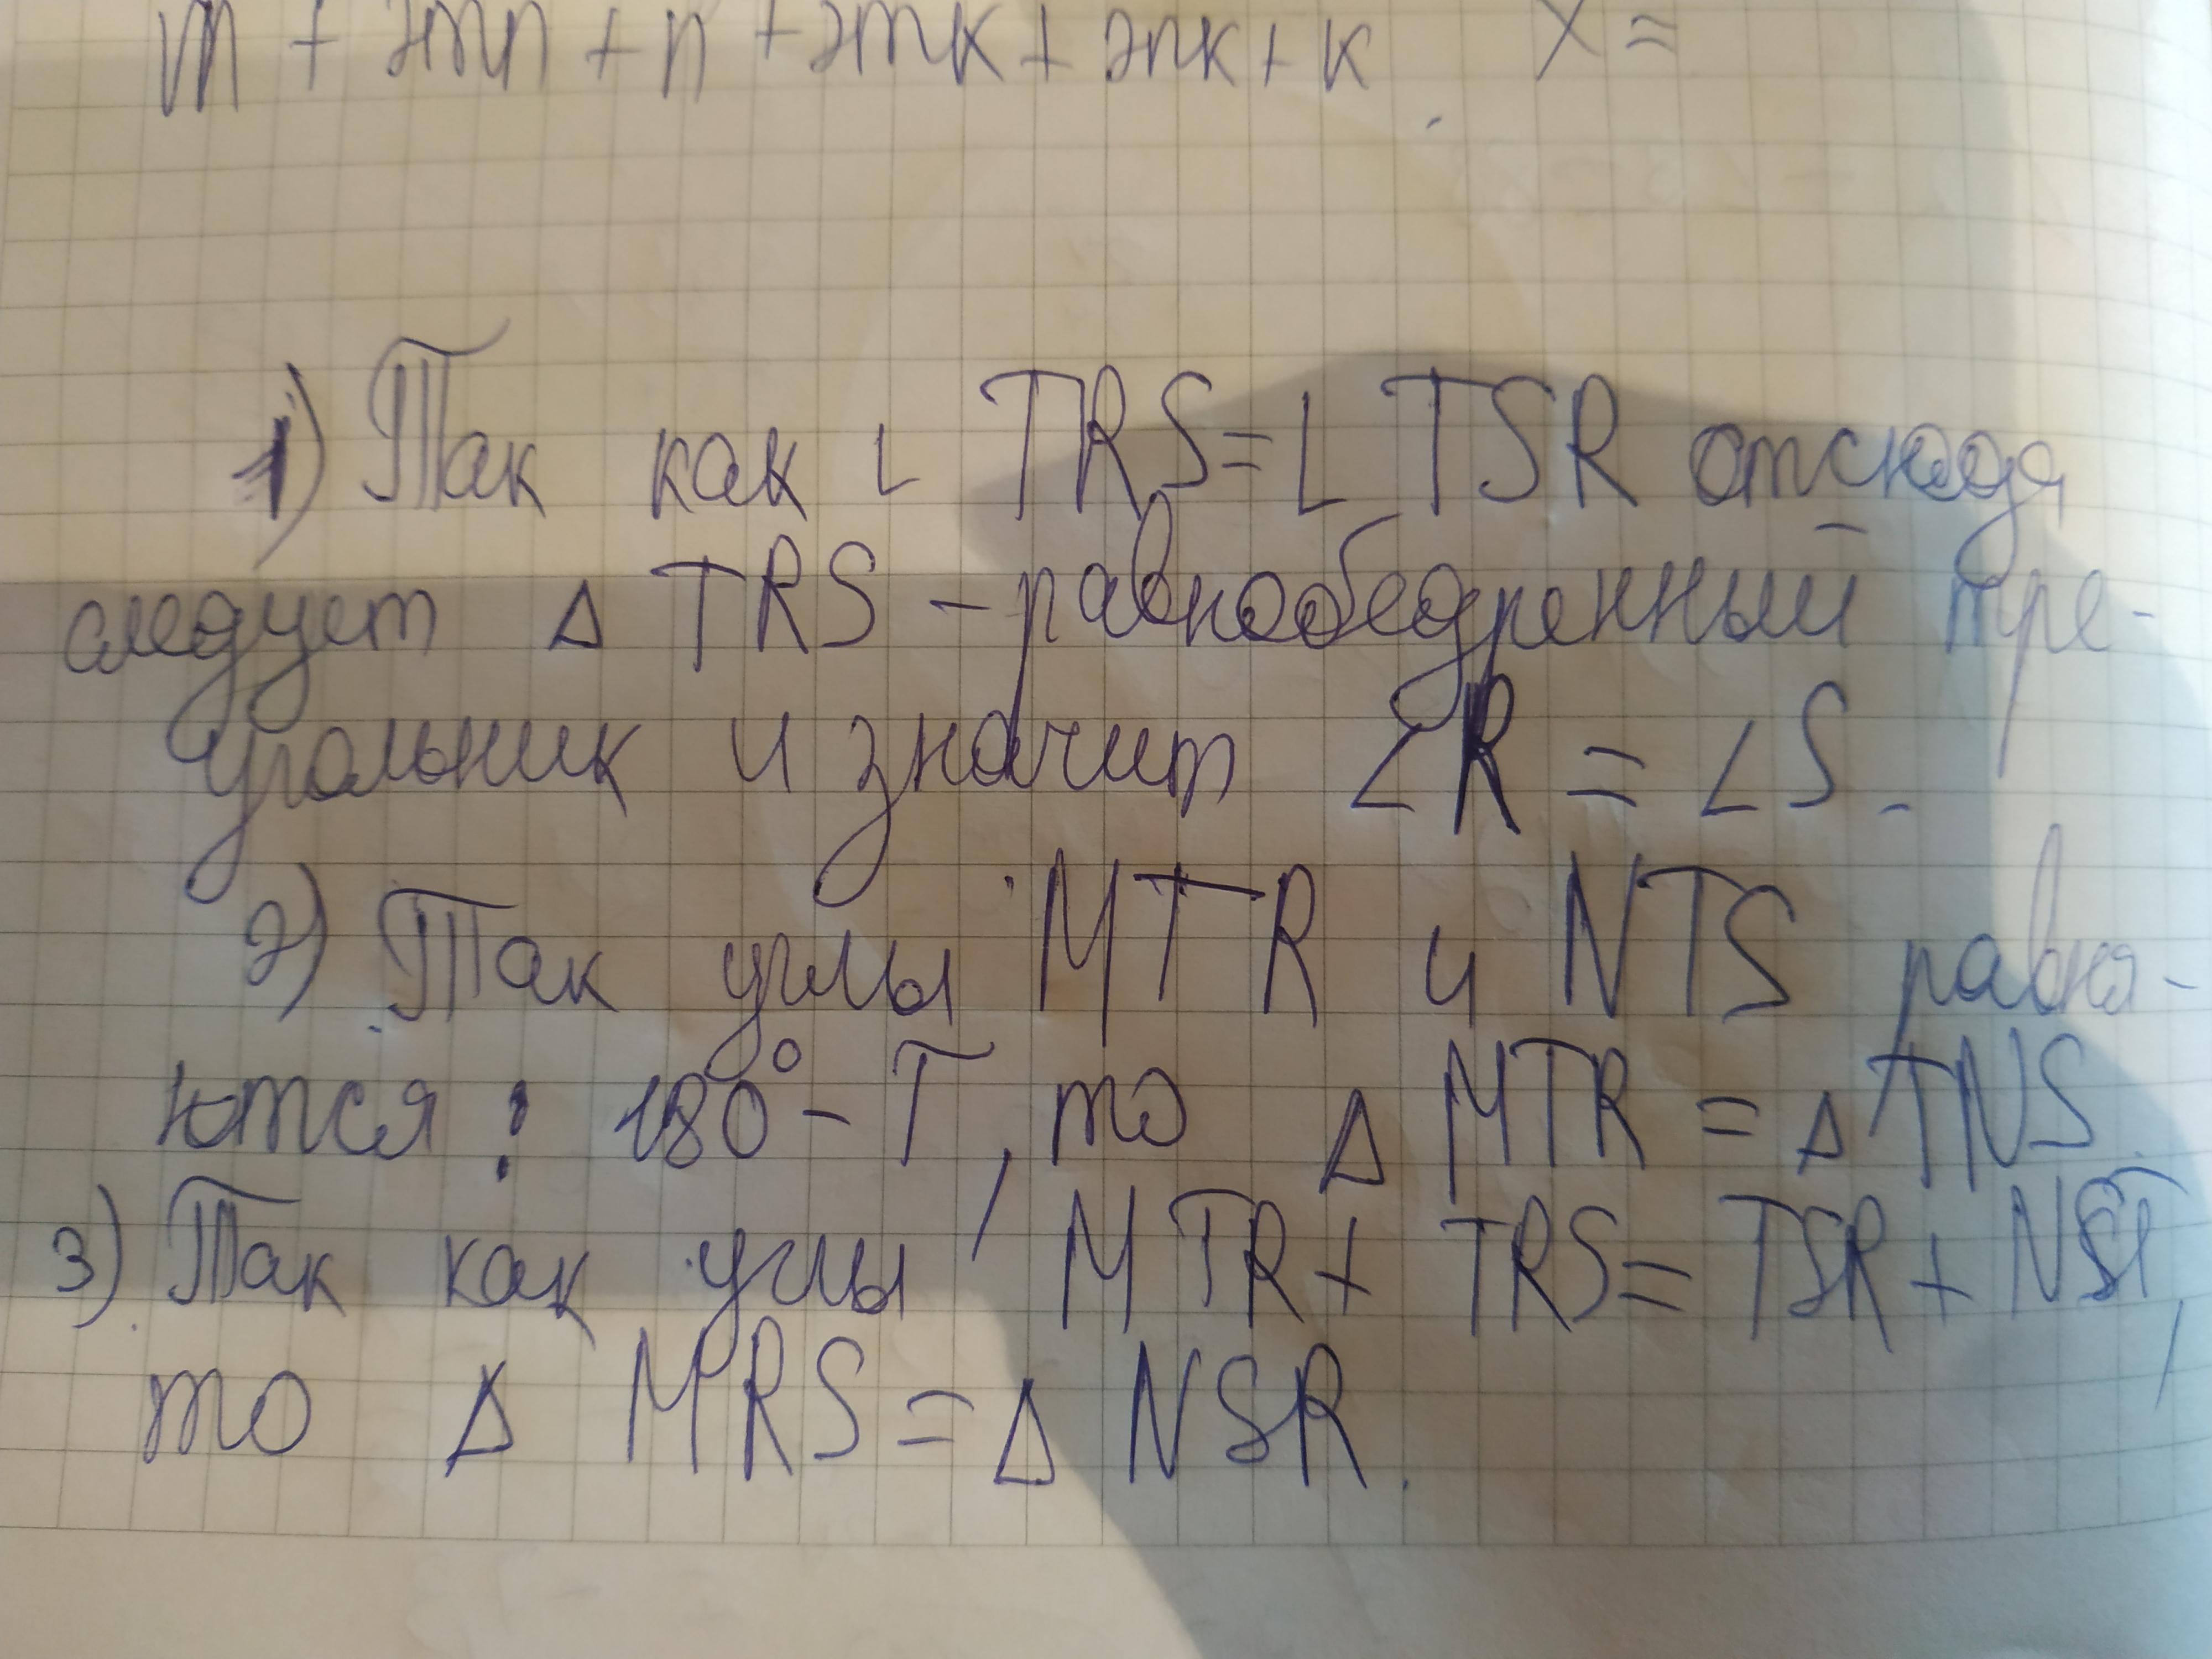 m + 2mn + n + 2mk + 2nk + k x =
1) Так как ∟ TRS = ∟ TSR отсюда
следует Δ TRS - равнобедренный тре-
угольник и значит ∠R = ∠S.
2) Так углы MTR и NTS равня-
ются : 180° - T, то Δ MTR = Δ TNS.
3) Так как углы MTR + TRS = TSR + NST,
то Δ MRS = Δ NSR.